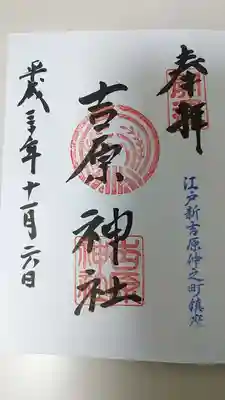 奉拝
江戸新吉原仲之町鎮座
吉原神社
平成三十年十一月六日